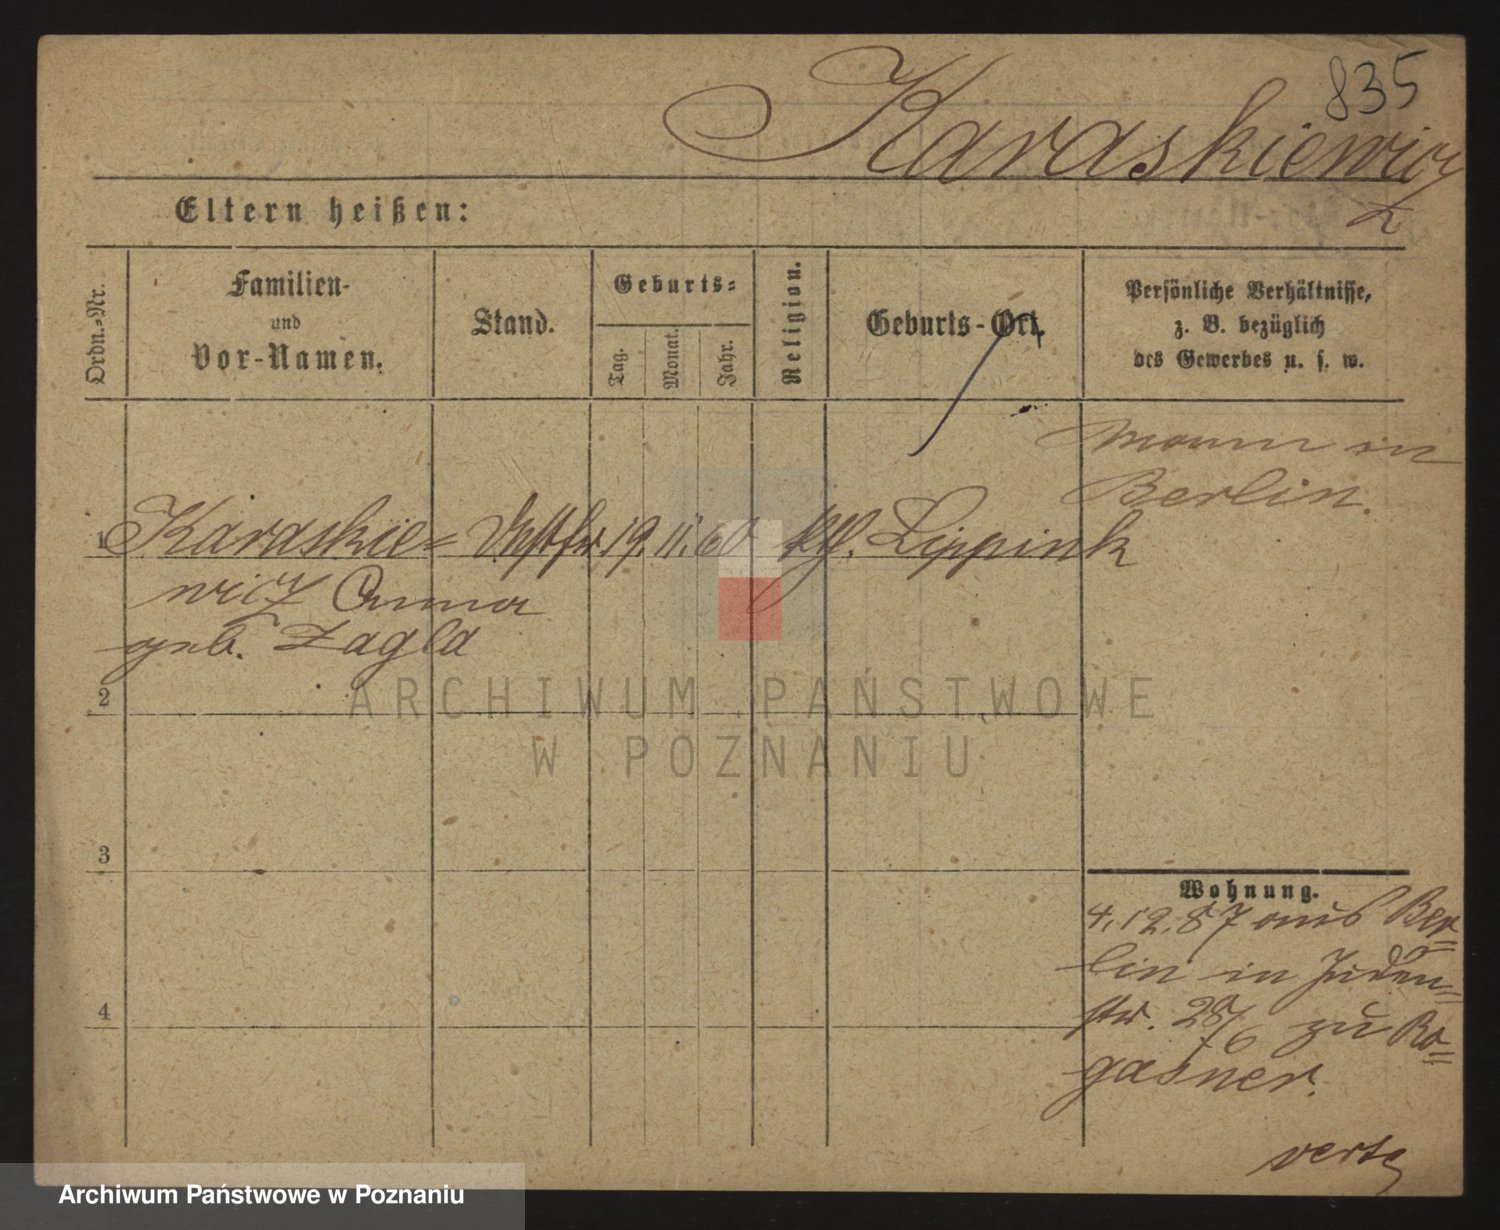 835
Karaskiewicz
Eltern heißen:
Ordn.-Nr.
Familien-
und
Vor-Namen.
Stand.
Geburts-
Tag.
Monat.
Jahr.
Religion.
Geburts-Ort.
Persönliche Verhältnisse,
z. B. bezüglich
des Gewerbes u. s. w.
Mann in
Berlin.
1 Karaskie- 19. 11. 60 kth. Lippink
wicz Anna
geb. Zagla
2
3
4
Wohnung.
4.12.87 aus Ber-
lin in Juden-
str. 28/6 zu Ro-
gasner.
verte
ARCHIWUM PAŃSTWOWE
W POZNANIU
Archiwum Państwowe w Poznaniu